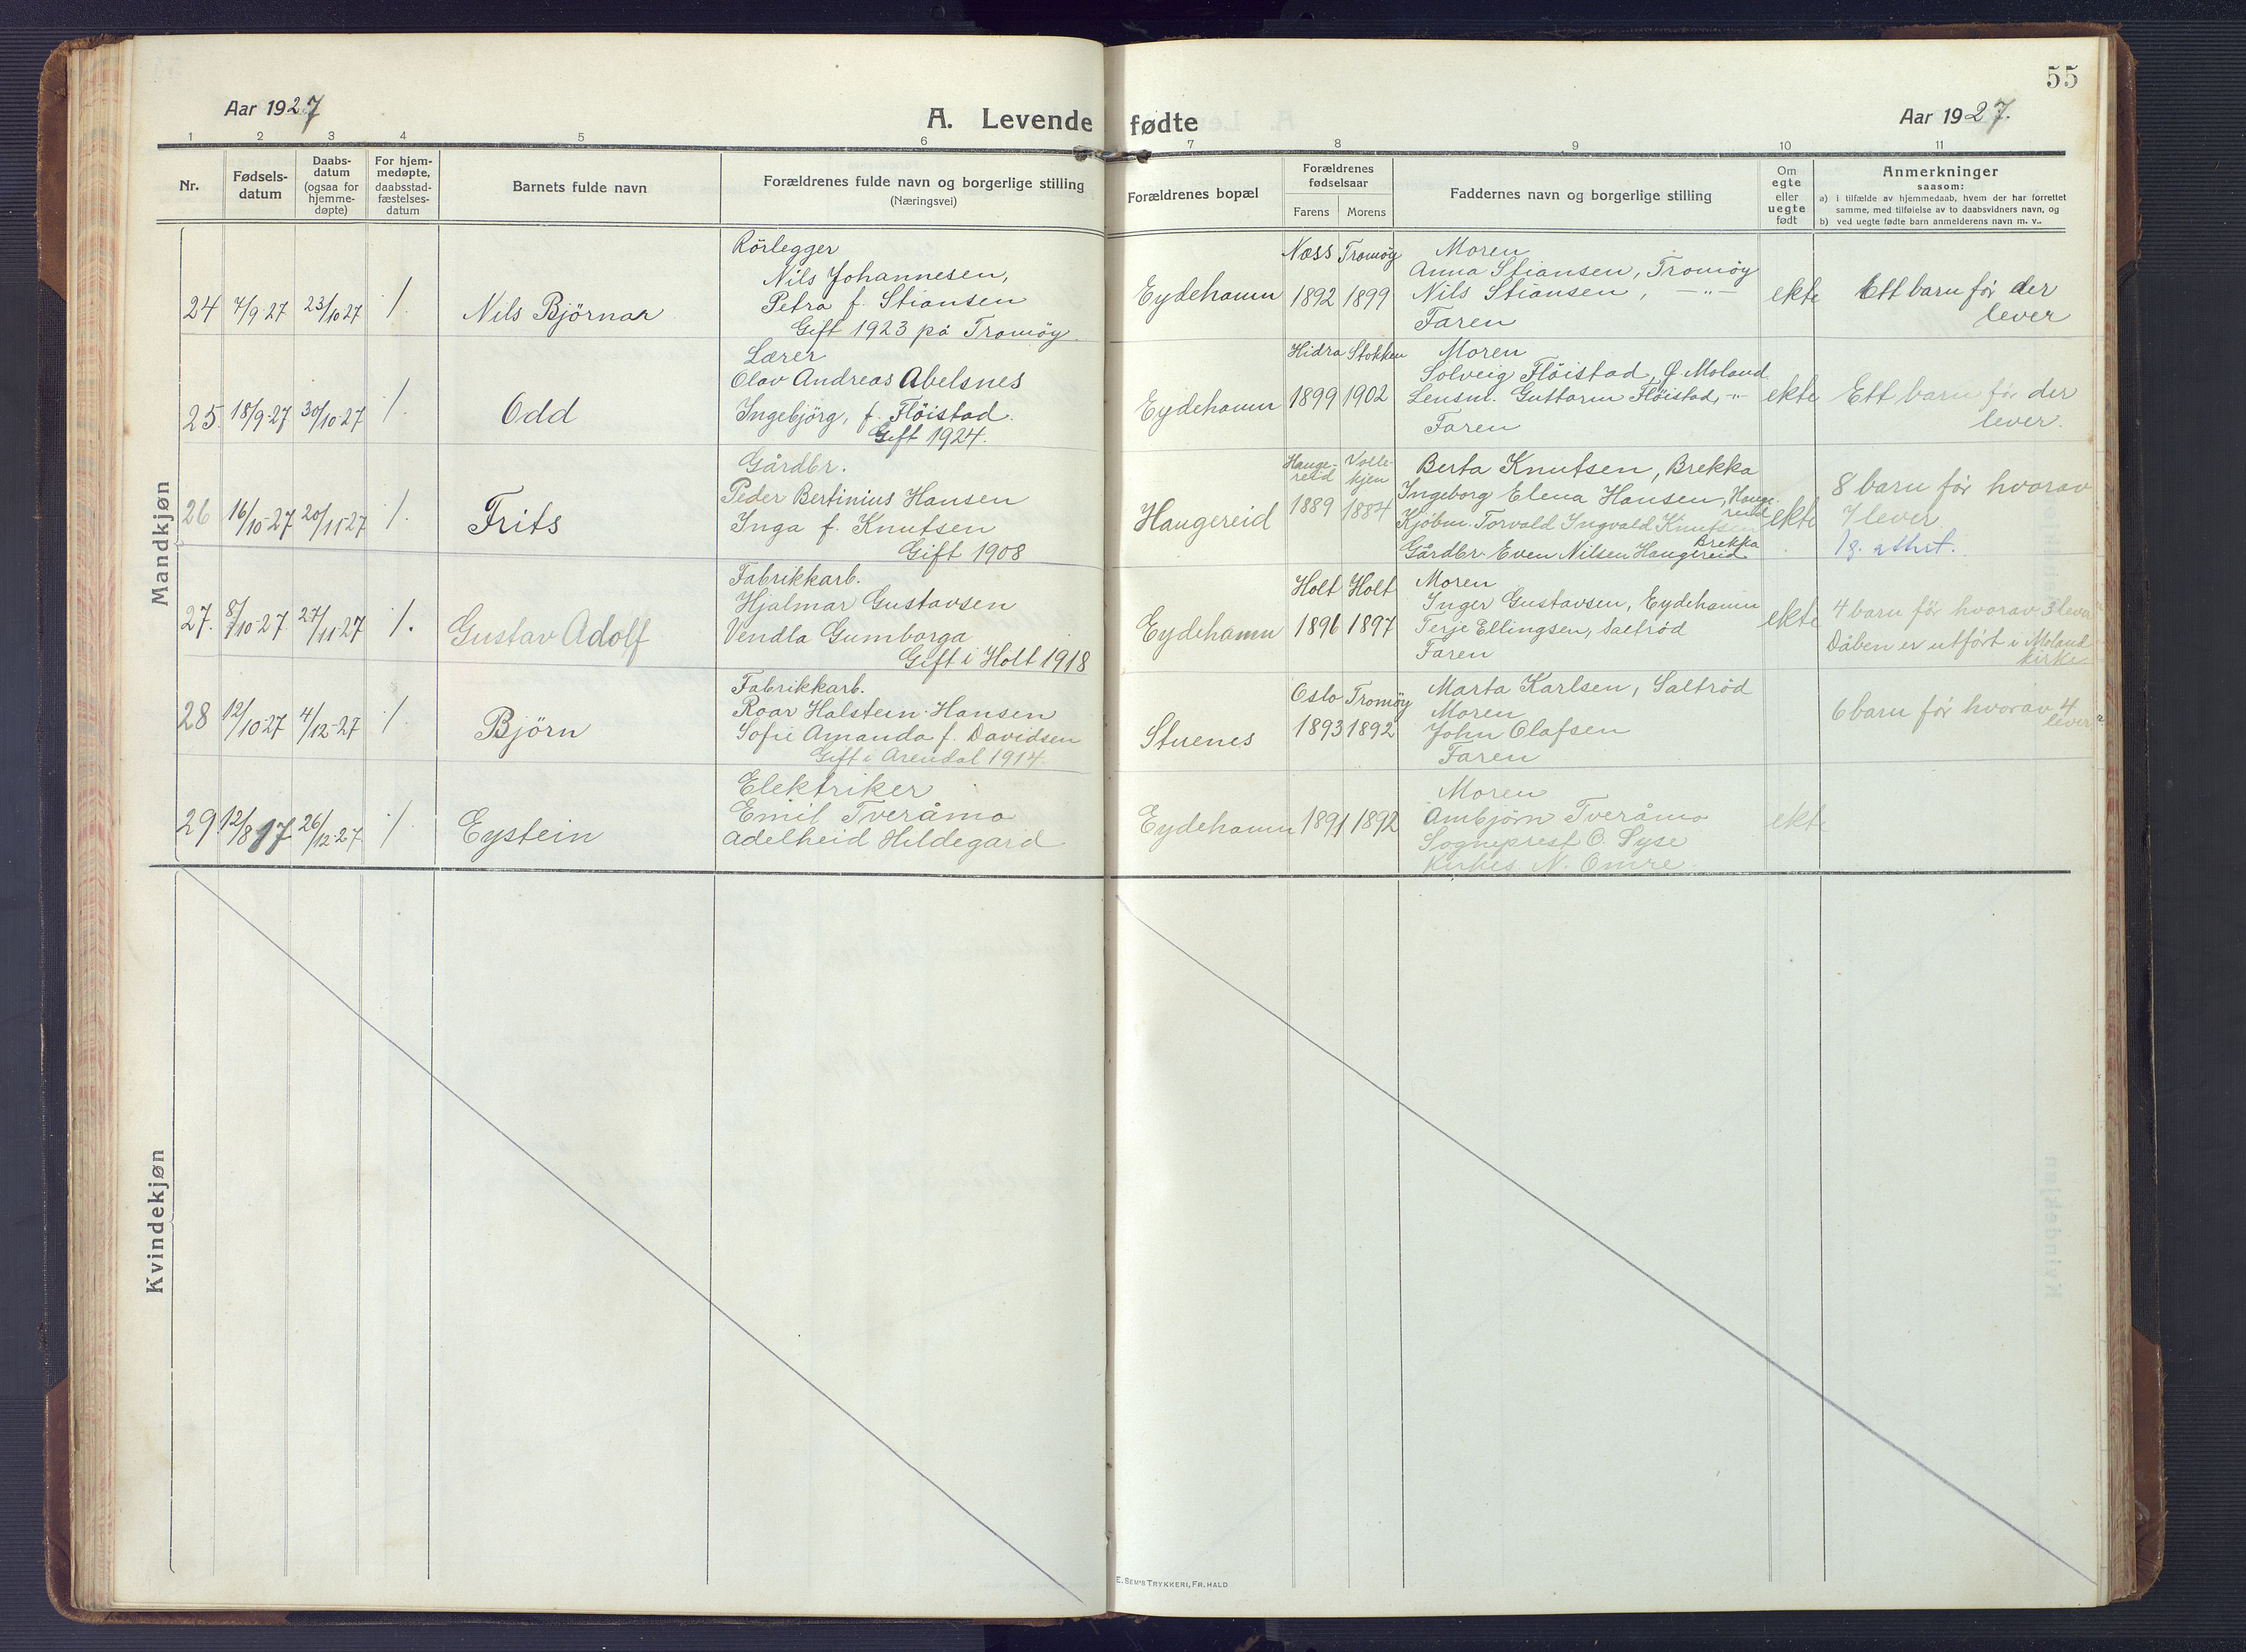 55
Aar 1927
A. Levende fødte
Aar 1927.
1 2 3 4 5 6 7 8 9 10 11
Nr.
Fødsels-
datum
Daabs-
datum
(ogsaa for
hjemme-
døpte)
For hjem-
medøpte,
daabsstad-
fæstelses-
datum
Barnets fulde navn
Forældrenes fulde navn og borgerlige stilling
(Næringsvei)
Forældrenes bopæl
Forældrenes
fødselsaar
Farens
Morens
Faddernes navn og borgerlige stilling
Om
egte
eller
uegte
født
Anmerkninger
saasom:
a) i tilfælde av hjemmedaab, hvem der har forrettet
samme, med tilføielse av to daabsvidners navn, og
b) ved uegte fødte barn anmelderens navn m. v..
Mandkjøn
24
7/9-27
23/10-27
/.
Nils Björnar
Rörlegger
Nils Johannesen,
Petra f. Stiansen
Gift 1923 på Tromöy.
Eydehamn
Næss
1892
Tromöy
1899
Moren
Anna Stiansen, Tromöy
Nils Stiansen, —"—
Faren
ekte
Ett barn för der
lever
25.
18/9-27
30/10-27
/.
Odd
Lærer
Olav Andreas Abelsnes
Ingebjörg, f. Flöistad.
Gift 1924.
Eydehamn
Hidra
1899
Stokken
1902
Moren
Solveig Flöistad, Ø. Moland
Lensm. Guttorm Flöistad, -"-
Faren
ekte
Ett barn för der
lever.
26
16/10-27
20/11-27
/.
Frits
Gårdbr.
Peder Bertinius Hansen
Inga f. Knutsen
Gift 1908
Haugereid
Hauge-
reid
1889
Volle-
kjen
1884
Berta Knutsen, Brekka
Ingeborg Elena Hansen, Hauge-
reid
Kjöbm. Torvald Ingvald Knutsen
Brekka
Gårdbr. Even Nilsen Haugereid.
ekte
8 barn för hvorav
7 lever
27.
8/10-27.
27/11-27
/.
Gustav Adolf
Fabrikkarb.
Hjalmar Gustavsen
Vendla Gumborga
Gift i Holt 1918
Eydehamn
Holt
1896
Holt
1897
Moren
Inger Gustavsen, Eydehamn
Terje Ellingsen, Saltröd
Faren
ekte
4 barn för hvorav 3 lever
Dåben er utfört i Moland
kirke
28
12/10-27
4/12-27
/.
Björn
Fabrikkarb.
Roar Halstein Hansen
Sofie Amanda f. Davidsen
Gift i Arendal 1914.
Stuenes
Oslo
1893
Tromöy
1892
Marta Karlsen, Saltröd
Moren
John Olafsen
Faren
6 barn för hvorav 4
lever
29.
12/8 17
26/12-27
/.
Eystein
Elektriker
Emil Tveråmo
Adelheid Hildegard
Eydehamn
1891
1892
Moren
Ambjörn Tveråmo
Sogneprest O. Syse
Kirkes. N. Omre.
ekte
Kvindekjøn
E. Sem's Trykkeri, Fr.hald